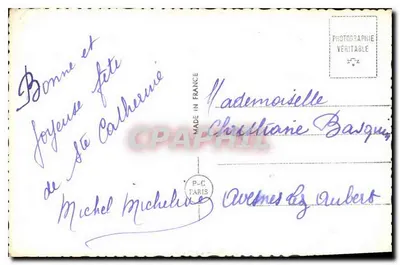 Bonne et
joyeuse fête
de Ste Catherine
Michel Micheline
MADE IN FRANCE
P-C
PARIS
PHOTOGRAPHIE
VÉRITABLE
Mademoiselle
Christiane
Avesnes lez Aubert
CPAPHIL